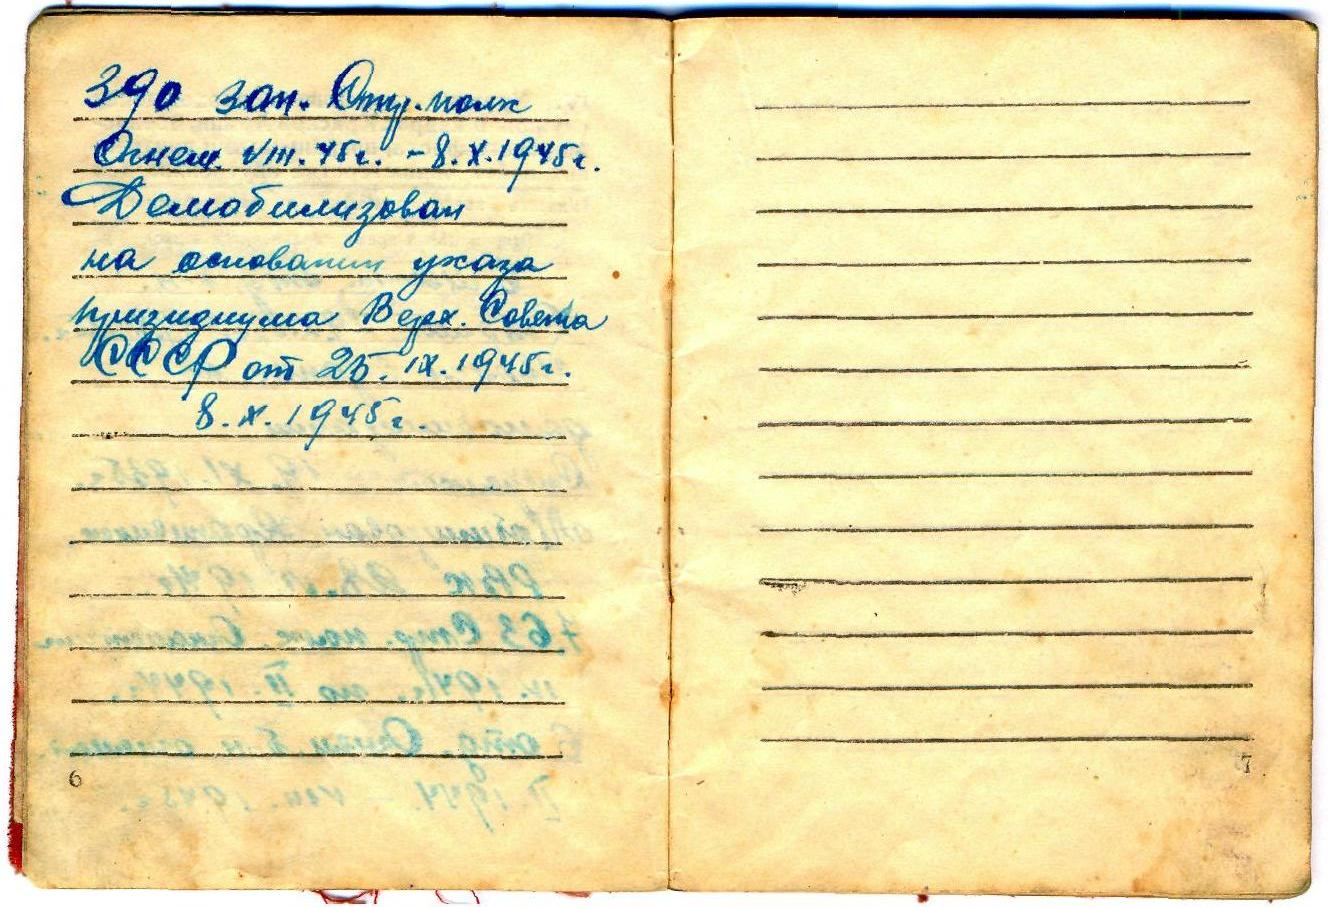 390 зап. Стр. полк
Огнем. VIII. 45г. – 8. X. 1945г.
Демобилизован
на основании указа
призидиума Верх. Совета
СССР от 25. IX. 1945г.
8. X. 1945г.
6
7